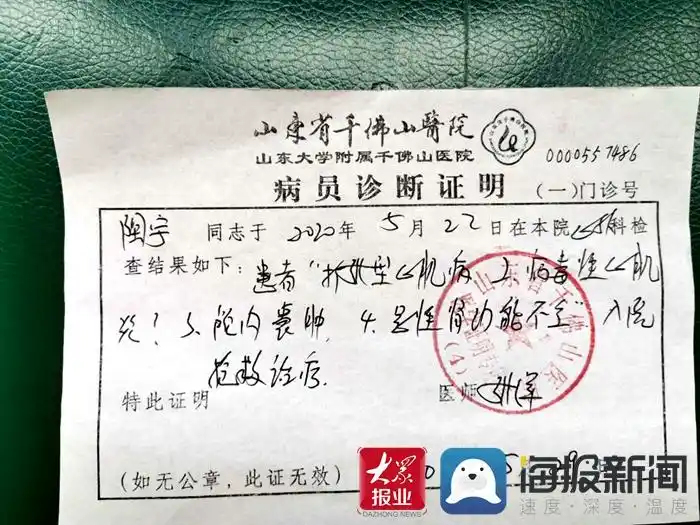 山东省千佛山醫院
山东大学附属千佛山医院
0000557486
病员诊断证明 (一)门诊号
陶宇 同志于 2020 年 5 月 22 日在本院 科检
查结果如下: 患者"扩张型心肌病 2.病毒性心肌
炎? 3. 囊肿. 4.急性肾功能不全" 入院
抢救治疗.
特此证明
医师
山东省千佛山医院
(如无公章,此证无效)
大众报业
DAZHONG.NEWS
海报新闻
速度·深度·温度